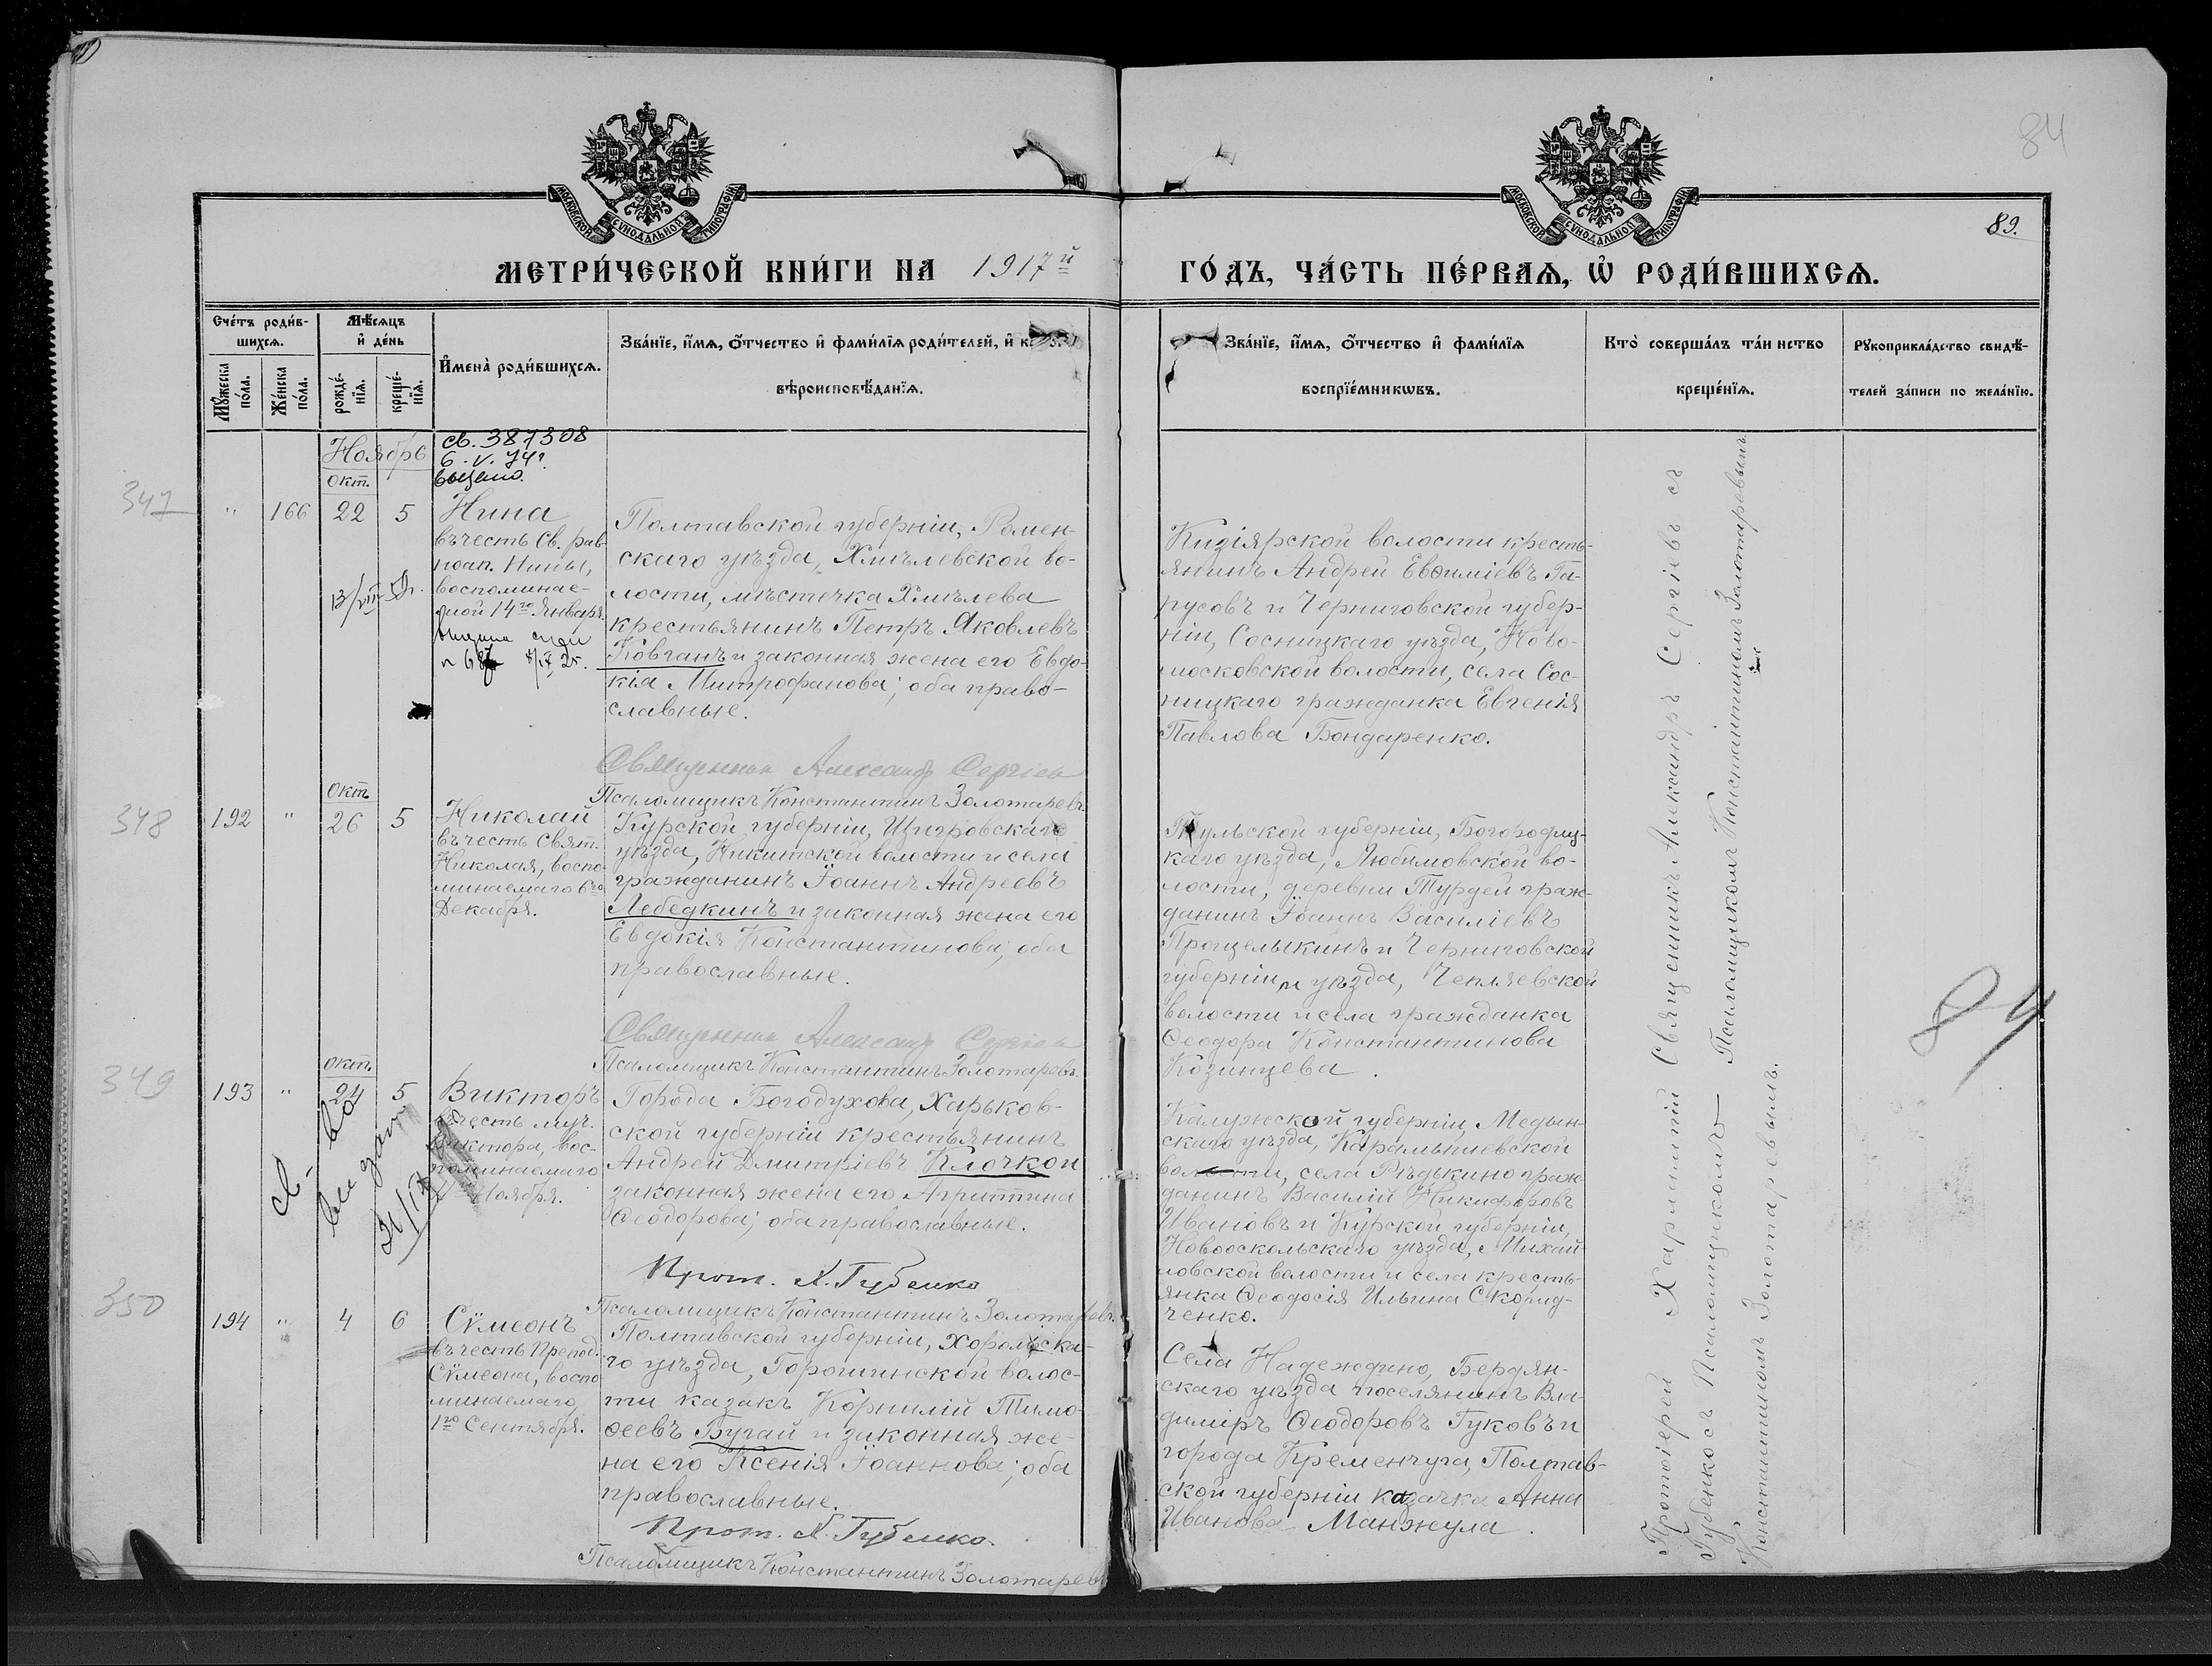 84
89.
МОСКОВСКОЙ СѴНОДАЛЬНОЙ ТИПОГРАФІИ
МОСКОВСКОЙ СѴНОДАЛЬНОЙ ТИПОГРАФІИ
МЕТРИ́ЧЕСКОЙ КНИ́ГИ НА 1917й
ГО́ДЪ, ЧА́СТЬ ПЕ́РВАѦ, Ѡ РОДИ́ВШИХСѦ.
Сче́тъ роди́в-
шихсѧ.
Мꙋ́жеска по́ла.
Же́нска по́ла.
Мѣ́сѧцъ
и҆ де́нь
рожде́-
нїѧ.
креще́-
нїѧ.
И҆мена̀ роди́вшихсѧ.
Зва́нїе, и҆́мѧ, ѻ҆́тчество и҆ фами́лїѧ роди́телей, и҆
вѣроисповѣ́данїѧ.
Зва́нїе, и҆́мѧ, ѻ҆́тчество и҆ фами́лїѧ
воспрїе́мникѡвъ.
Кто̀ соверша́лъ та́инство
креще́нїѧ.
Рꙋкоприкла́дство свидѣ́-
телей за́писи по жела́нїю.
Ноябрь
св. 387308
6.V.74г.
окт.
347 " 166 22 5 Нина
въ честь Св. рав-
ноап. Нины,
воспоминае-
мой 14го Января.
13/VIII
Полтавской губерніи, Ромен-
скаго уѣзда, Хмѣлевской во-
лости, мѣстечка Хмѣлева
крестьянинъ Петръ Яковлевъ
Ковганъ и законная жена его Евдо-
кія Митрофанова; оба право-
славные.
Священник Александр Сергіев
Псаломщикъ Константинъ Золотаревъ.
Кизіярской волости кресть-
янинъ Андрей Евѳиміевъ Га-
русовъ и Черниговской губер-
ніи, Сосницкаго уѣзда, Ново-
московской волости, села Сос-
ницкаго гражданка Евгенія
Павлова Бондаренко.
окт.
348 192 " 26 5 Николай
въ честь Свят.
Николая, воспо-
минаемаго 6го
Декабря.
Курской губерніи, Щигровскаго
уѣзда, Никитской волости и села
гражданинъ Іоаннъ Андреевъ
Лебедкинъ и законная жена его
Евдокія Константинова; оба
православные.
Священник Александр Сергіев
Псаломщикъ Константинъ Золотаревъ.
Тульской губерніи, Богородиц-
каго уѣзда, Любимовской во-
лости, деревни Турдей граж-
данинъ Іоаннъ Василіевъ
Прощелыкинъ и Черниговской
губерніи и уѣзда, Чепляевской
волости и села гражданка
Ѳеодора Константинова
Козинцева.
окт.
349 193 " 24 5 Викторъ
въ честь муч.
Виктора, вос-
поминаемаго
11го Ноября.
Города Богодухова, Харьков-
ской губерніи крестьянинъ
Андрей Дмитріевъ Клочко и
законная жена его Агриппина
Ѳеодорова; оба православные.
Прот. Х. Губенко
Псаломщикъ Константинъ Золотаревъ.
Калужской губерніи, Медын-
скаго уѣзда, Карамышевской
волости, села Рѣдькино граж-
данинъ Василій Никифоровъ
Ивановъ и Курской губерніи,
Новооскольскаго уѣзда, Михай-
ловской волости и села кресть-
янка Ѳеодосія Ильина Скорид-
ченко.
350 194 " 4 6 Сѵмеонъ
въ честь Препод.
Сѵмеона, воспо-
минаемаго
1го Сентября.
Полтавской губерніи, Хорольска-
го уѣзда, Горошинской волос-
ти казакъ Корнилій Тимо-
ѳеевъ Бугай и законная же-
на его Ксенія Іоаннова; оба
православные.
Прот. Х. Губенко.
Псаломщикъ Константинъ Золотаревъ
Села Надеждино, Бердян-
скаго уѣзда поселянинъ Вла-
диміръ Ѳеодоровъ Гуковъ и
города Кременчуга, Полтав-
ской губерніи казачка Анна
Иванова Манжула.
Протоіерей Харлампій
Губенко съ Псаломщикомъ
Константиномъ Золотаревымъ.
Священникъ Александръ Сергіевъ съ
Псаломщикомъ Константиномъ Золотаревымъ.
84